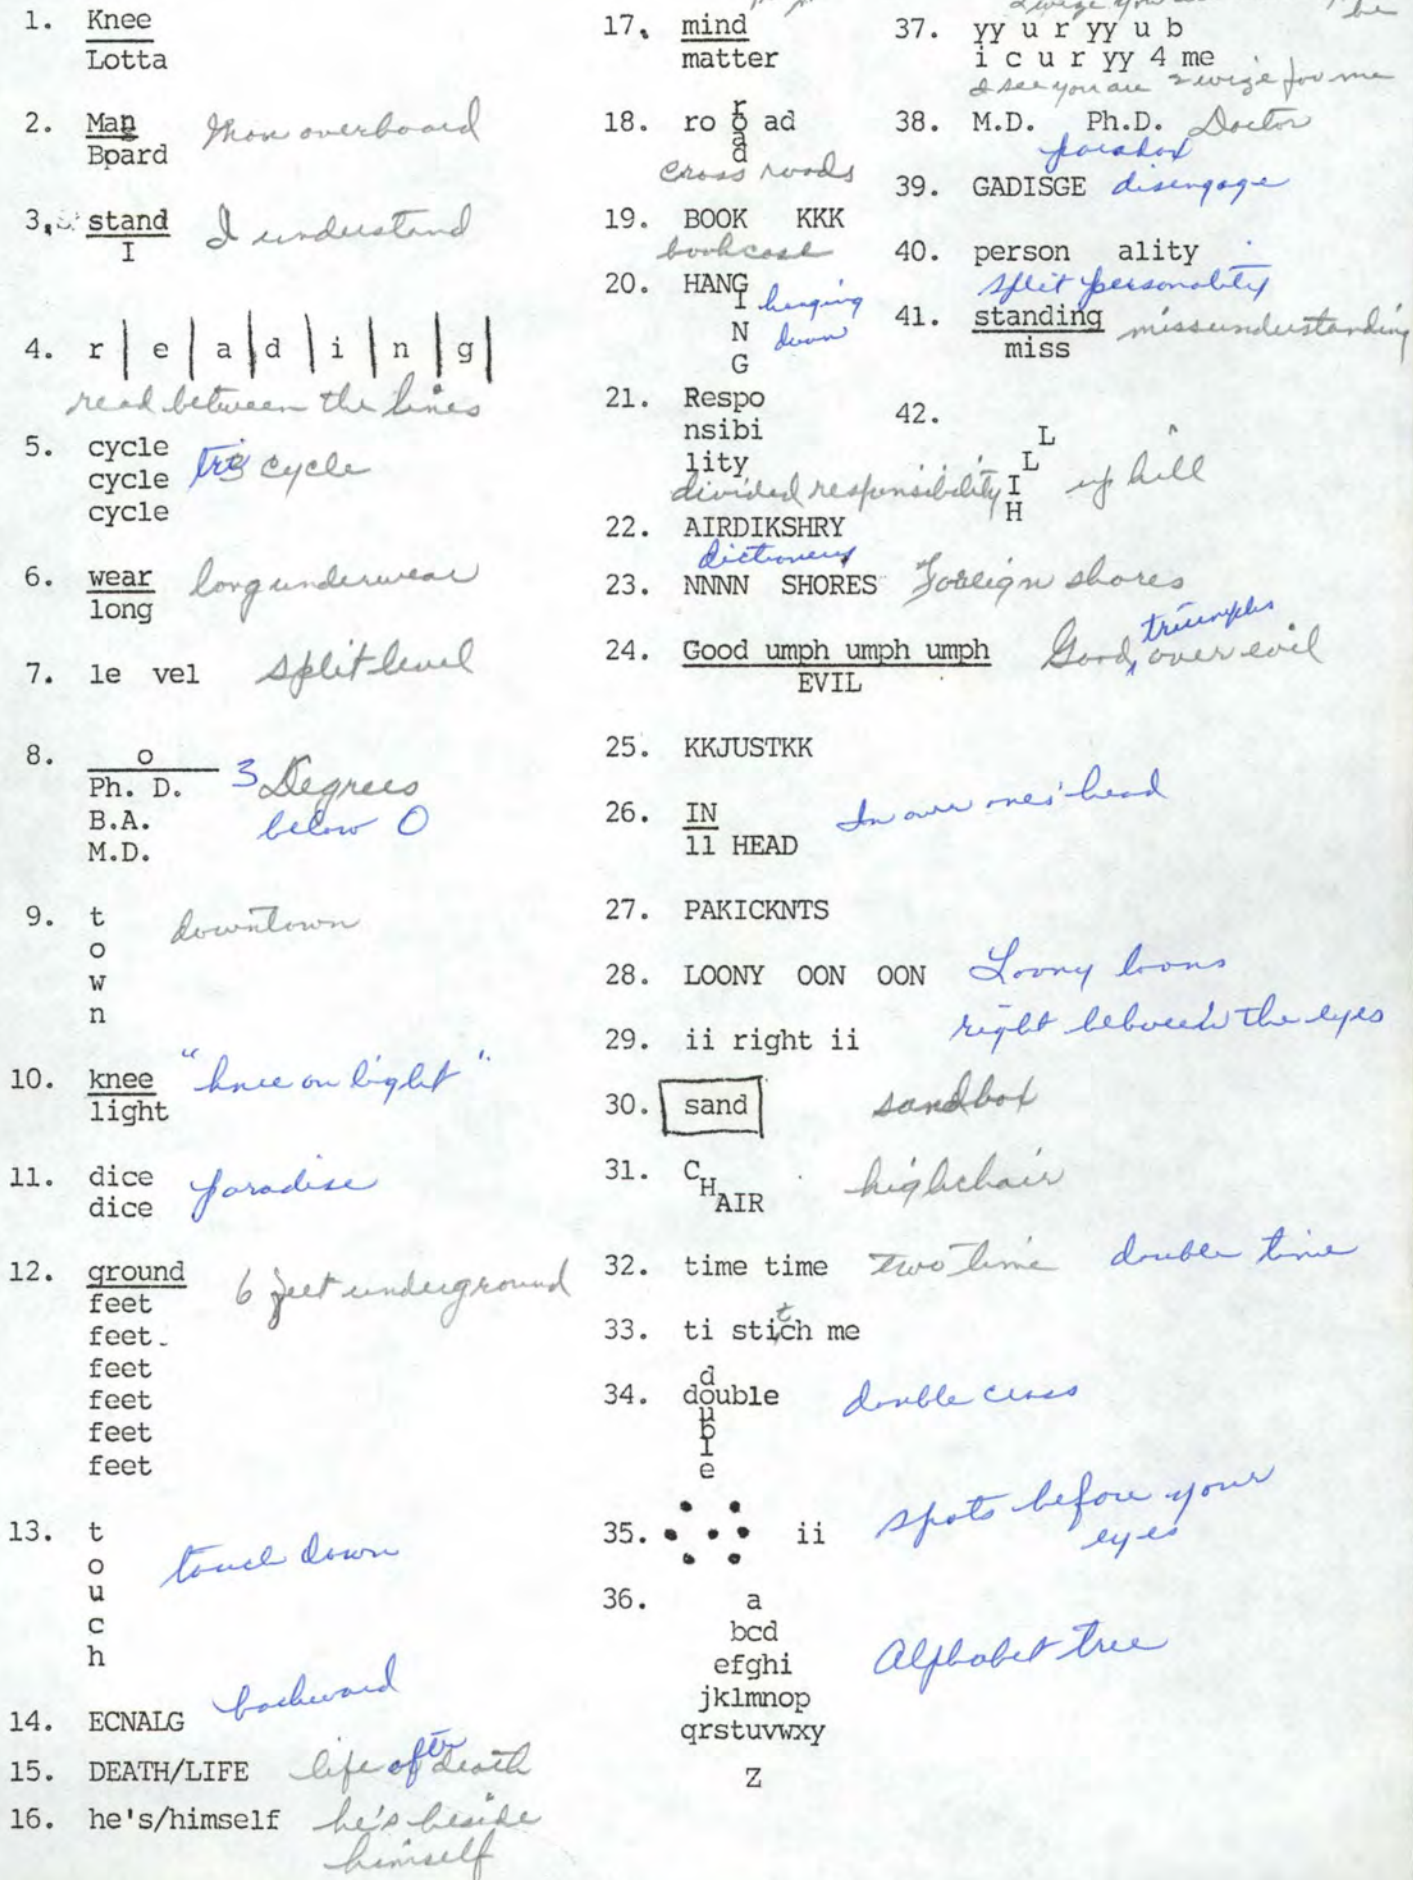 1. Knee
Lotta
2. Man
Bpard
Man overboard
3. stand
I
I understand
4. r | e | a | d | i | n | g |
read between the lines
5. cycle
cycle
cycle
tri cycle
6. wear
long
long underwear
7. le vel
split level
8. o
Ph. D.
B.A.
M.D.
3 Degrees
below 0
9. t
o
w
n
downtown
10. knee
light
"knee on light"
11. dice
dice
paradise
12. ground
feet
feet
feet
feet
feet
feet
6 feet underground
13. t
o
u
c
h
touch down
14. ECNALG
backward
15. DEATH/LIFE
life after death
16. he's/himself
he's beside
himself
17. mind
matter
18. ro ad
r
o
a
d
cross roads
19. BOOK KKK
bookcase
20. HANG
I
N
G
hanging
down
21. Respo
nsibi
lity
divided responsibility
22. AIRDIKSHRY
dictionery
23. NNNN SHORES
Foreign shores
24. Good umph umph umph
EVIL
Good triumphs over evil
25. KKJUSTKK
26. IN
11 HEAD
In over ones' head
27. PAKICKNTS
28. LOONY OON OON
Loony loons
29. ii right ii
right between the eyes
30. sand
sandbox
31. C
H
AIR
highchair
32. time time
two time double time
33. ti stitch me
t
34. double
d
u
b
l
e
double cross
35. ii
spots before your
eyes
36. a
bcd
efghi
jklmnop
qrstuvwxy
Z
Alphabet tree
be
37. yy u r yy u b
i c u r yy 4 me
I see you are 2 wize for me
38. M.D. Ph.D.
Doctor
paradox
39. GADISGE
disengage
40. person ality
split personality
41. standing
miss
missunderstanding
42. L
L
I
H
up hill